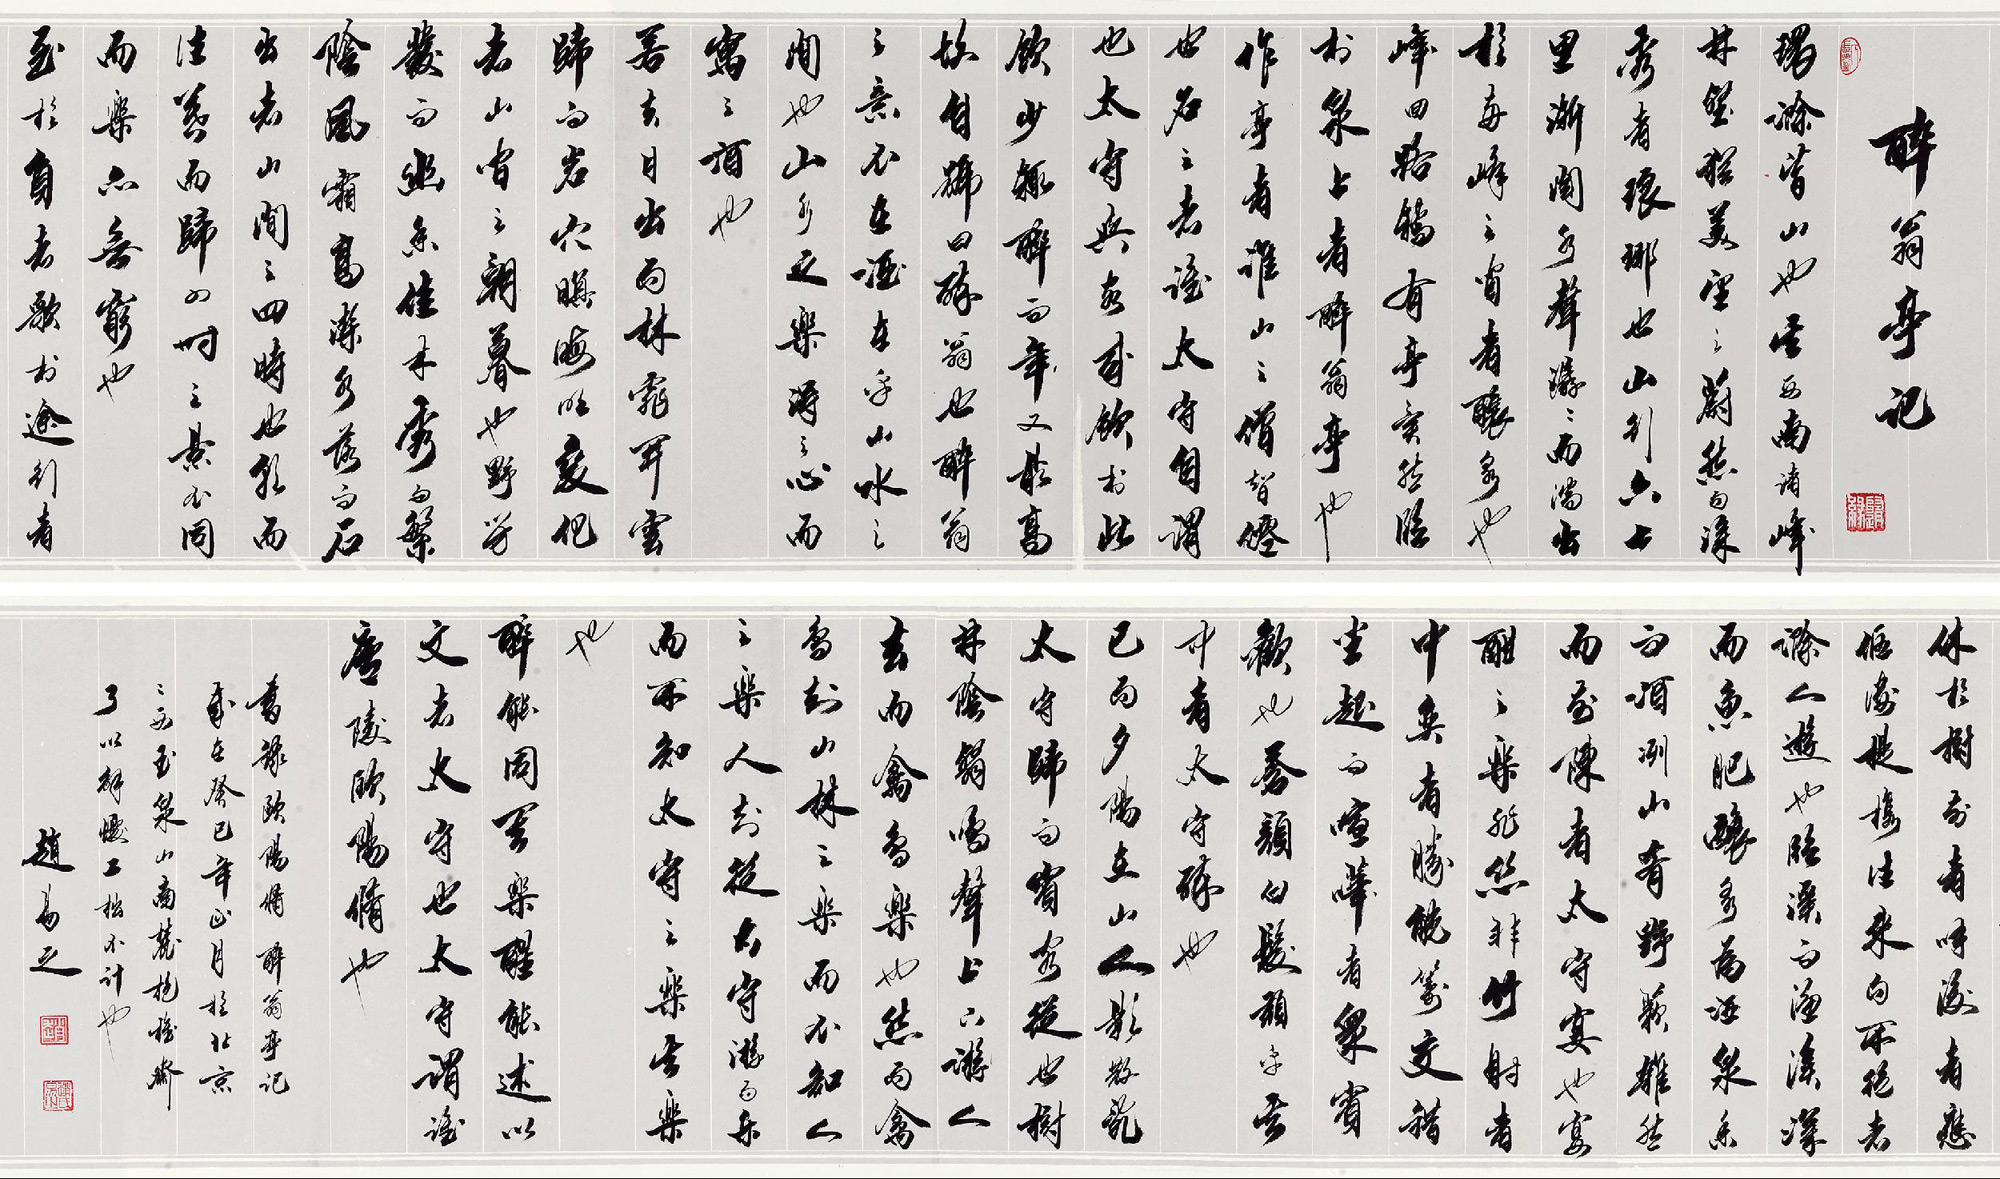 醉翁亭記
環滁皆山也其西南諸峰
林壑猶美望之蔚然而深
秀者瑯琊也山行六七
里漸聞水聲潺潺而瀉出
於兩峰之間者釀泉也
峰回路轉有亭翼然臨
於泉上者醉翁亭也
作亭者誰山之僧智僊
也名之者誰太守自謂
也太守與客來飲於此
飲少輒醉而年又最高
故自號曰醉翁也醉翁
之意不在酒在乎山水之
間也山水之樂得之心而
寓之酒也
若夫日出而林霏開雲
歸而岩穴暝晦明變化
者山間之朝暮也野芳
發而幽香佳木秀而繁
陰風霜高潔水落而石
出者山間之四時也朝而
往暮而歸四時之景不同
而樂亦無窮也
至於負者歌於途行者
休於樹前者呼後者應
傴僂提攜往來而不絕者
滁人遊也臨溪而漁溪深
而魚肥釀泉為酒泉香
而酒洌山肴野蔌雜然
而前陳者太守宴也宴
酣之樂非絲非竹射者
中奕者勝觥籌交錯
坐起而喧嘩者眾賓
歡也蒼顏白髮頹乎其
中者太守醉也
已而夕陽在山人影散亂
太守歸而賓客從也樹
林陰翳鳴聲上下遊人
去而禽鳥樂也然而禽
鳥知山林之樂而不知人
之樂人知從太守游而樂
而不知太守之樂其樂
也
醉能同其樂醒能述以
文者太守也太守謂誰
廬陵歐陽脩也
書錄歐陽脩醉翁亭記
歲在癸巳年正月於北京
之西玉泉山南麓抱樸齋
了以舒懷工拙不計也
趙易之